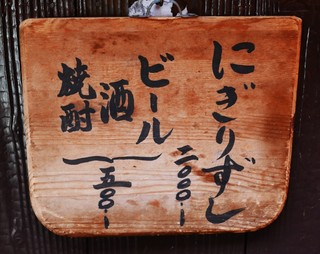 にぎりずし
二〇〇〇ー
ビール
酒
焼酎
五〇〇ー